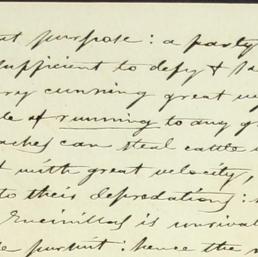 purpose: a party
sufficient to defy &
cunning great
& running to any
can steal cattle
with great velocity,
to their depredations:
Encinillas is
pursuit: hence the